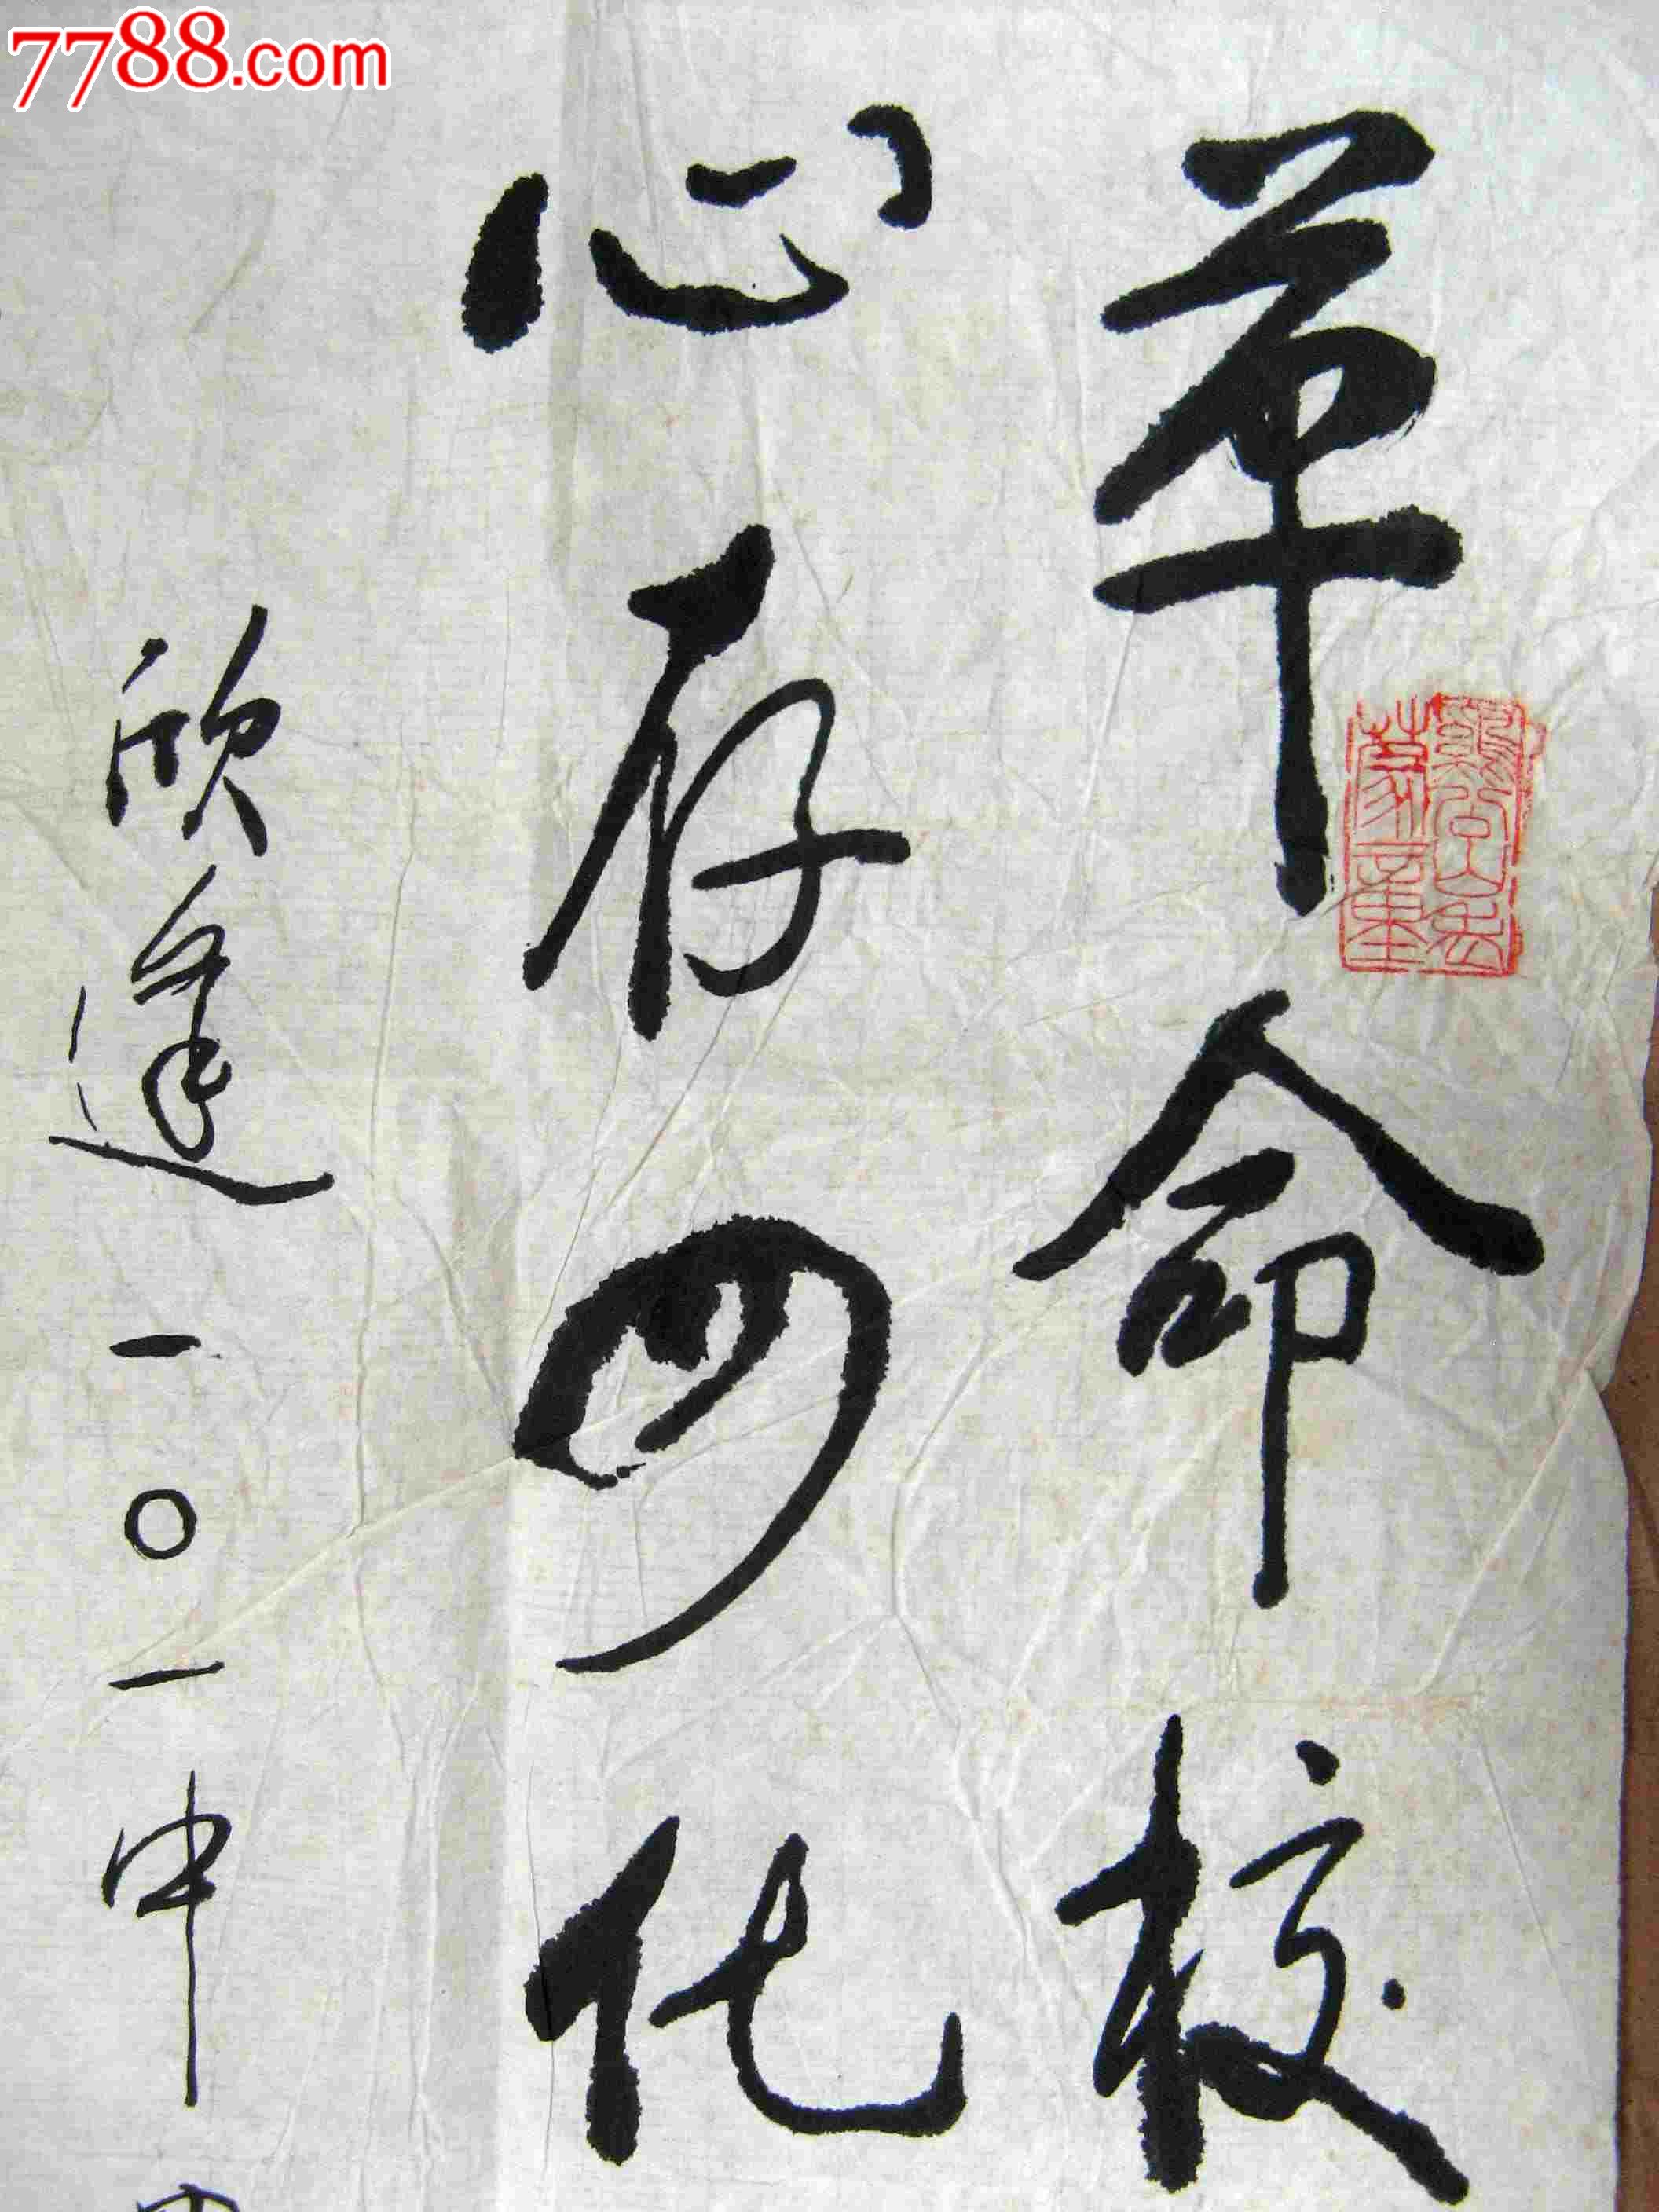 7788.com
革命校
心存四化
欣逢一〇一中